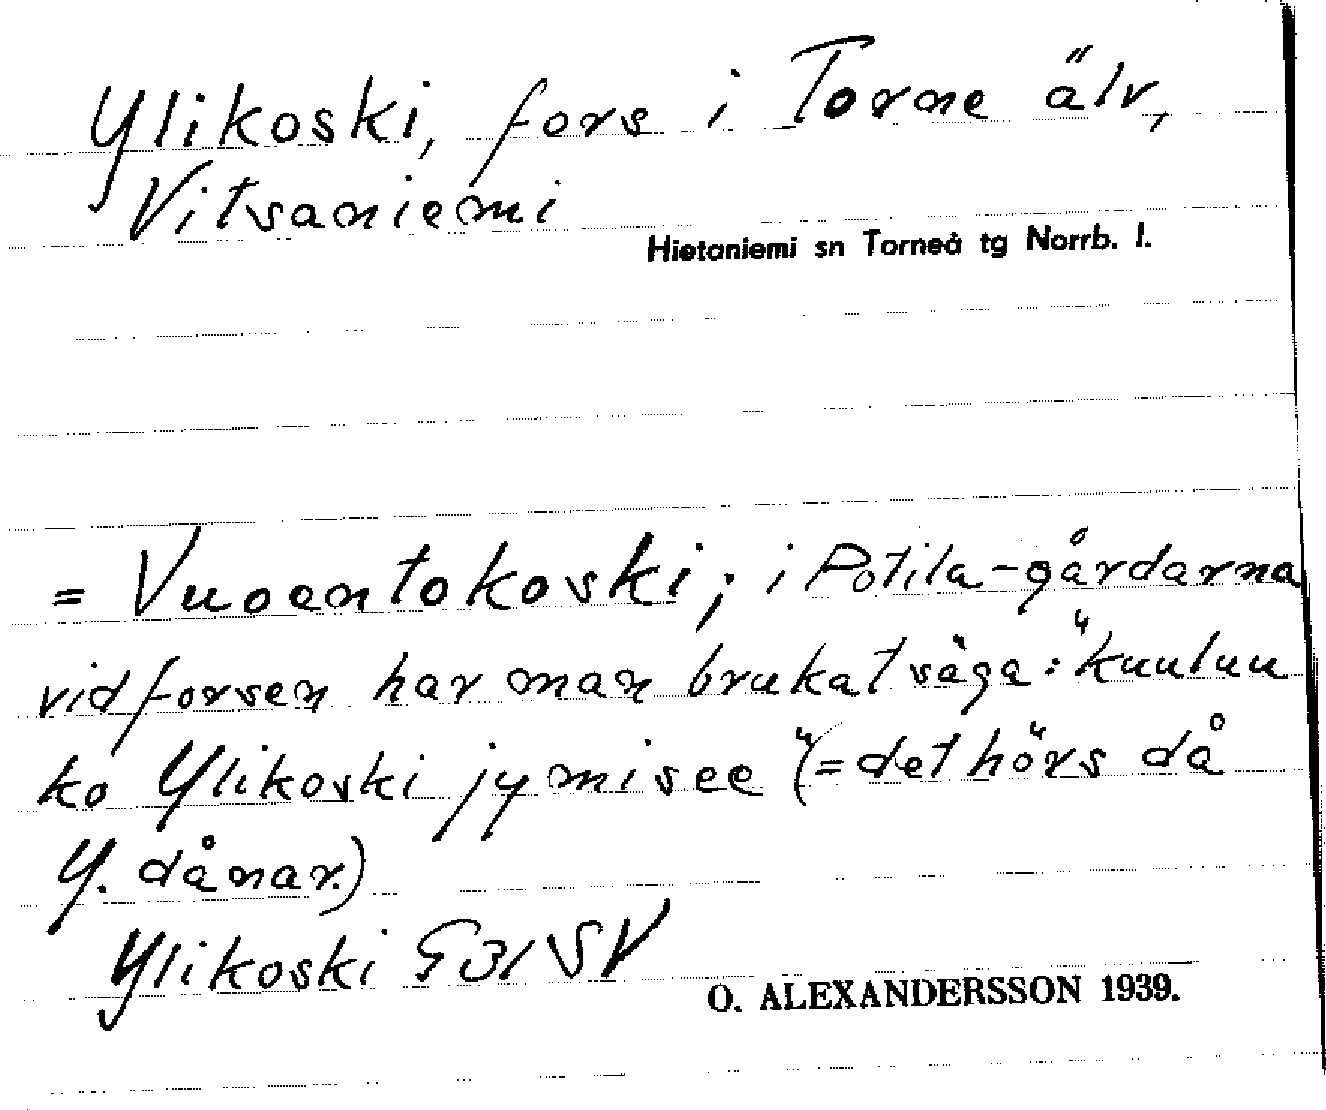 Ylikoski, fors i Torne älv,
Vitsaniemi
Hietaniemi sn Torneå tg Norrb. l.
= Vuoentokoski; i Potila-gårdarna
vid forsen har man brukat säga: "kuuluu
ko Ylikoski jymisee" (= det hörs då
Y. dånar.)
Ylikoski G31SV
O. ALEXANDERSSON 1939.